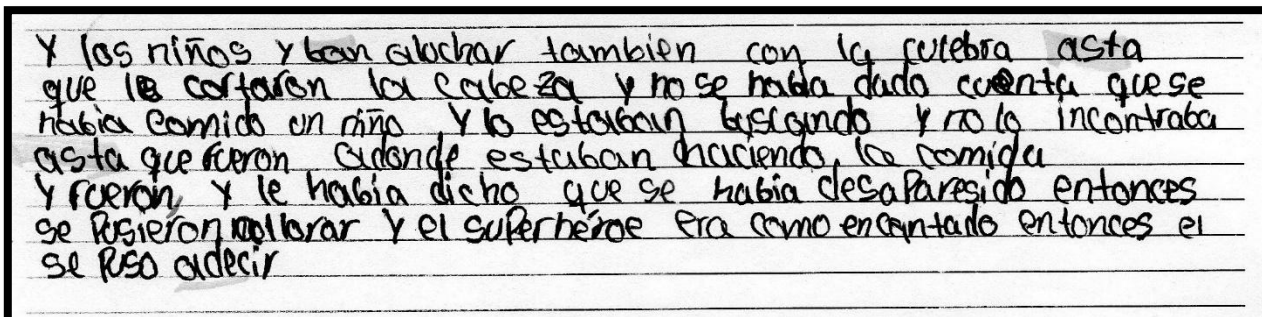 Y los niños y ban aluchar tambien con la culebra asta
que le cortaron la cabeza y no se había dado cuenta que se
había comido un niño, y lo estaban buscando y no lo incontraba
asta que fueron adonde estaban haciendo, la comida
y fueron, y le había dicho que se había desaparesido entonces
se pusieron allorar y el superhéroe era como encantado entonces el
se puso adecir